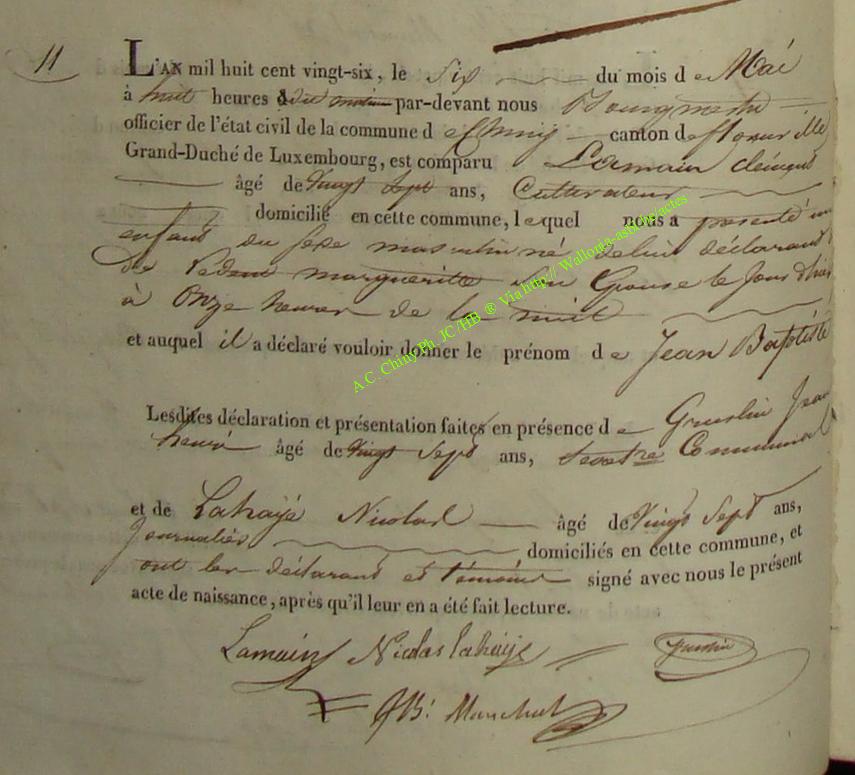 11
L'AN mil huit cent vingt-six, le Six du mois d e Mai
à huit heures du matin par-devant nous Bourgmestre
officier de l'état civil de la commune d e Chiny canton de florenville
Grand-Duché de Luxembourg, est comparu Lamain
âgé de vingt sept ans, Cultivateur
domicilié en cette commune, l e quel nous a présenté un
enfant du sexe masculin né de lui déclarant
de margueritte son Epouse le jour d'hier
à Onze heures de la nuit
et auquel il a déclaré vouloir donner le prénom d e Jean Baptiste
Lesdites déclaration et présentation faites en présence d e Jean
henri âgé de vingt sept ans, Communal
et de Lahaye Nicolas âgé de vingt sept ans,
Journalier domiciliés en cette commune, et
ont les déclarant et témoins signé avec nous le présent
acte de naissance, après qu'il leur en a été fait lecture.
Lamain Nicolas Lahaye
JB: Manchel
A.C. Chiny Ph. JC/HB ® Via http:// Wallonia-asbl/be/actes